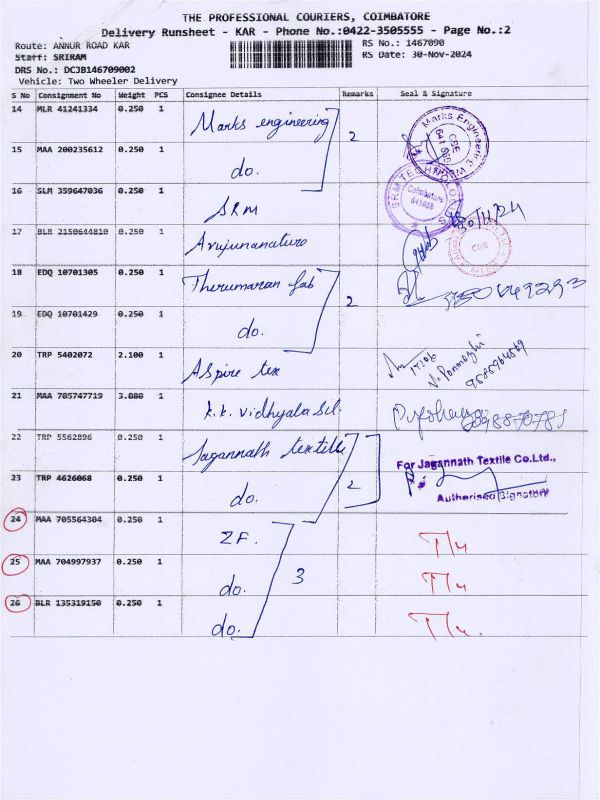 THE PROFESSIONAL COURIERS, COIMBATORE
Delivery Runsheet - KAR - Phone No.:0422-3505555 - Page No.:2
Route: ANNUR ROAD KAR
RS No.: 1467090
Staff: SRIRAM
RS Date: 30-Nov-2024
DRS No.: DCJB146709002
Vehicle: Two Wheeler Delivery
S No Consignment No Weight PCS Consignee Details Remarks Seal & Signature
14 MLR 41241334 0.250 1 Marks engineering
2
15 MAA 200235612 0.250 1 do.
Marks Engineering
CBE
16 SLM 359647036 0.250 1 SRM
SRM TECHNOLO
Coimbatore
641028
17 BLR 2150644810 0.250 1 Arujunanature
30/11/24
CBE
18 EDQ 10701305 0.250 1 Thirumaran fab
2
19 EDQ 10701429 0.250 1 do.
20 TRP 5402072 2.100 1 Aspire tex
17106
V. Ponmozhi
9585964869
21 MAA 705747719 3.080 1 k.k. vidhyala scl.
22 TRP 5562896 0.250 1 Jagannath textile
For Jagannath Textile Co.Ltd.,
2
23 TRP 4626068 0.250 1 do.
Authorised Signatory
24 MAA 705564304 0.250 1 ZF. T/4
25 MAA 704997937 0.250 1 do. 3 T/4
26 BLR 135319150 0.250 1 do. T/4.